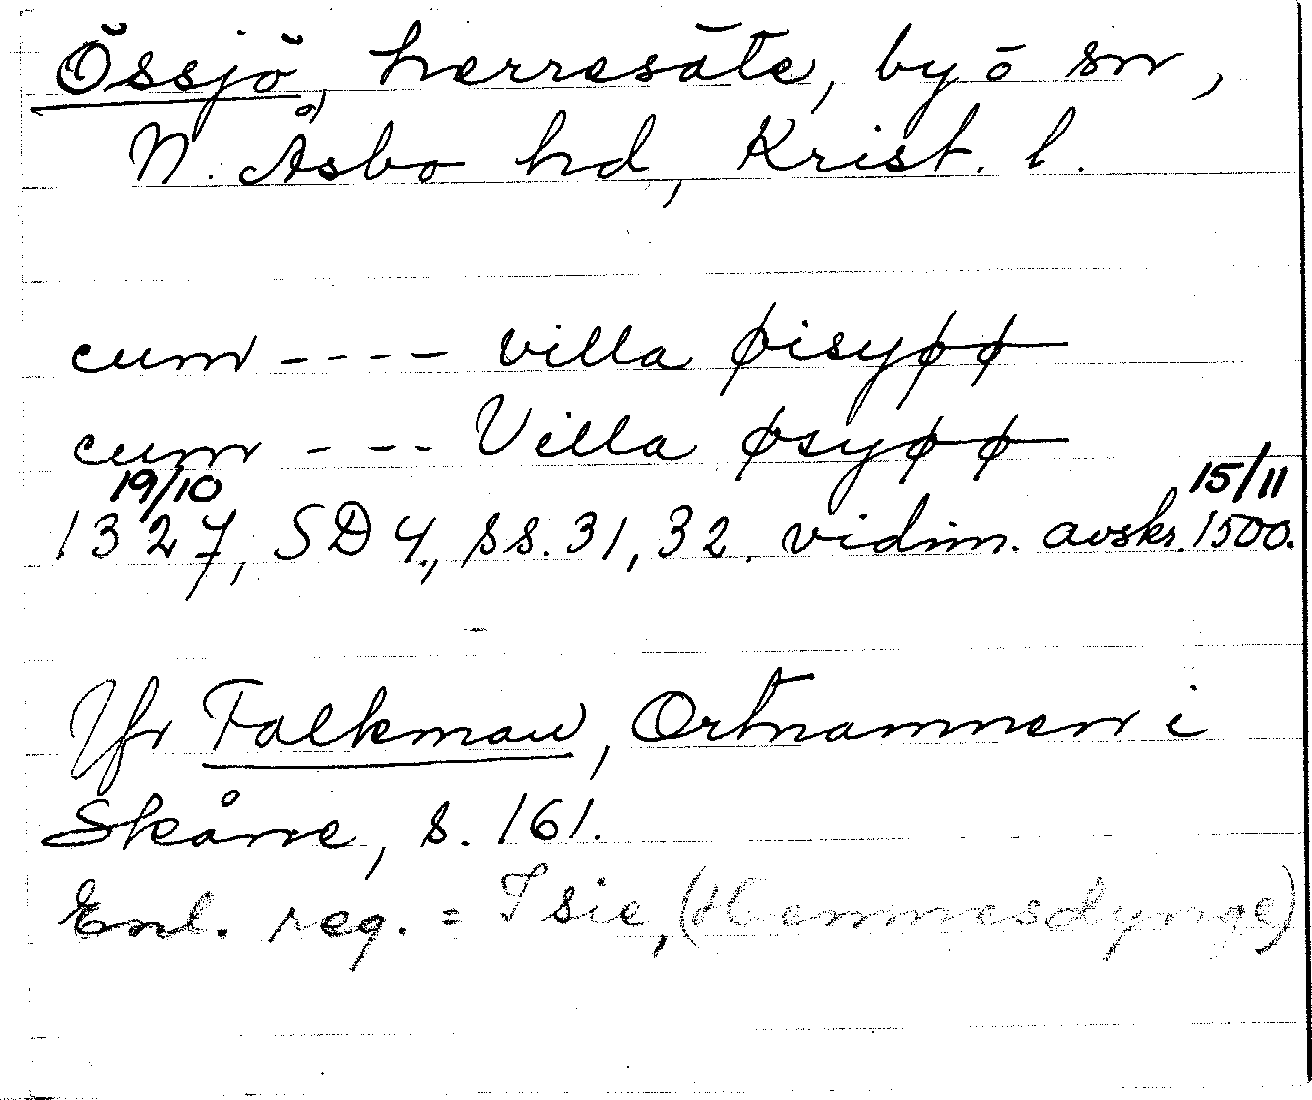 Össjö, herresäte, by o sn,
N. Åsbo hd, Krist. l.
cum ---- villa øisyøø
cum --- Villa øsyøø
19/10 15/11
1327, SD 4, ss. 31, 32. vidim. avskr. 1500.
Jfr Falkman, Ortnamnen i
Skåne, s. 161.
Enl. reg. = Isie, (Hemmesdynge)